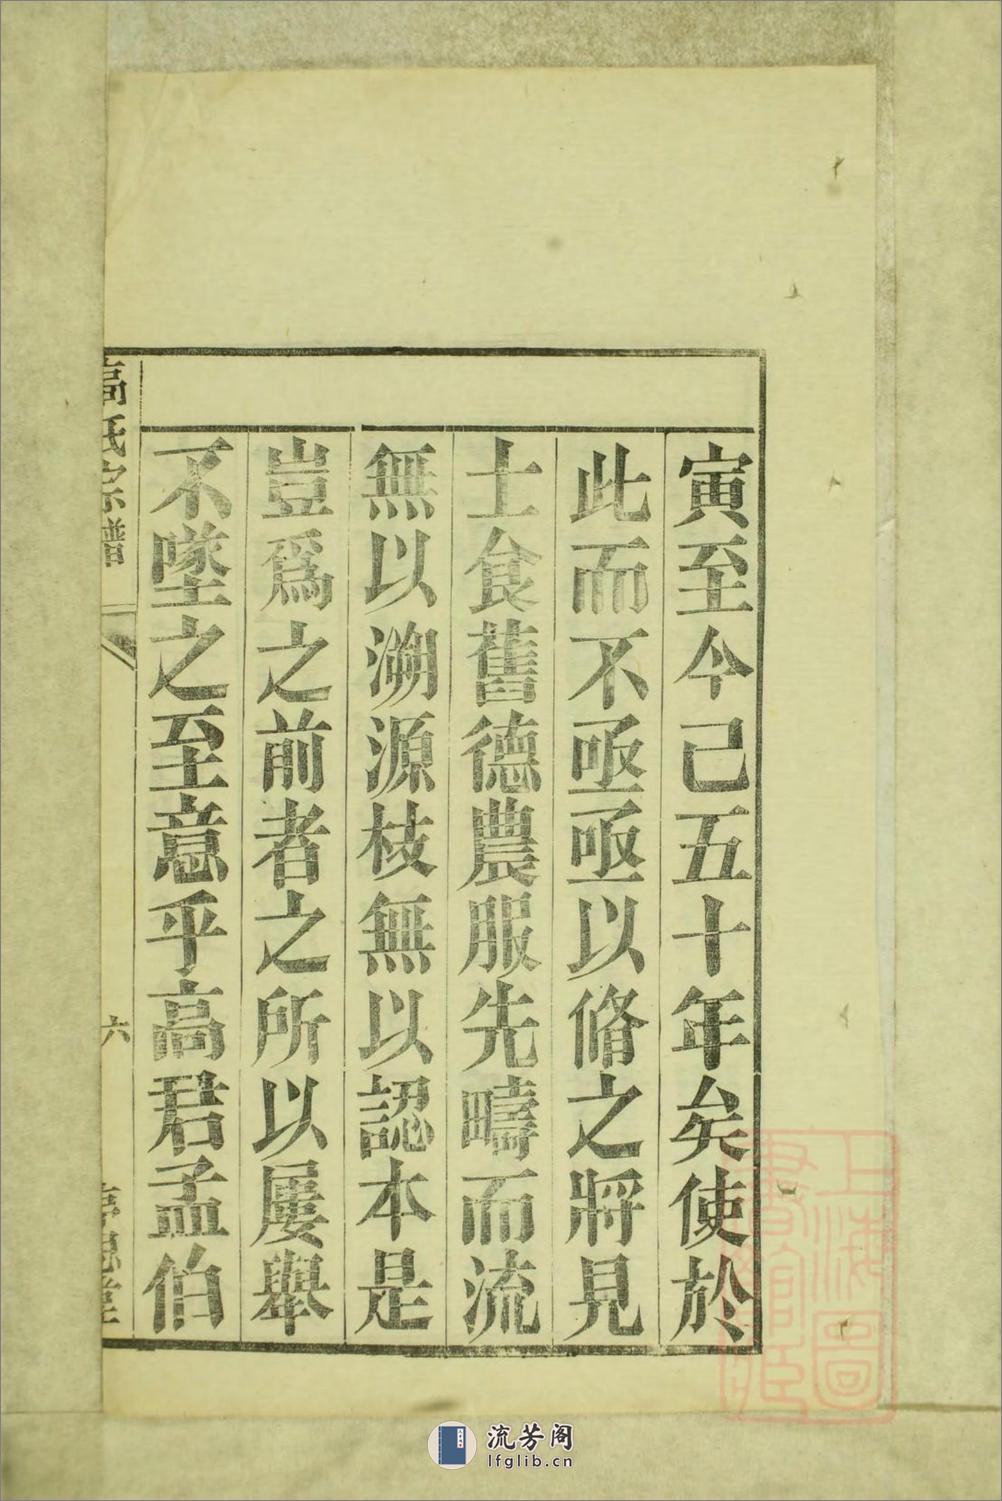 寅至今已五十年矣使於
此而不亟亟以脩之將見
士食舊德農服先疇而流
無以溯源枝無以認本是
豈爲之前者之所以屢舉
不墜之至意乎高君孟伯
高氏宗譜
六
上海圖
書館藏
流芳阁
lfglib.cn